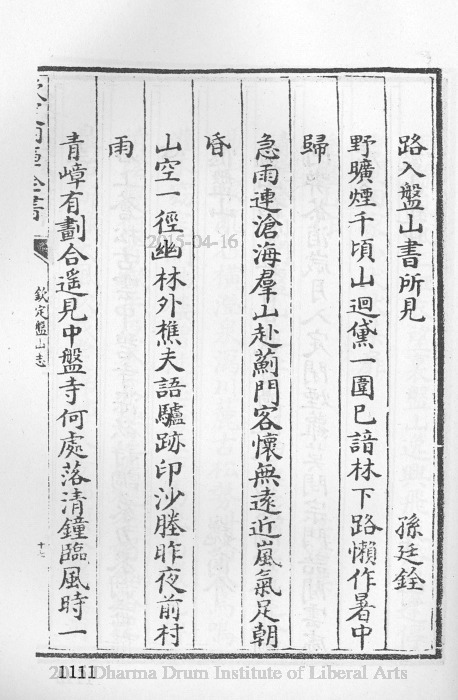 路入盤山書所見 孫廷銓
野曠煙千頃山迴黛一圍已諳林下路懶作暑中
歸
急雨連滄海羣山赴薊門客懷無遠近嵐氣足朝
昏
山空一徑幽林外樵夫語驢跡印沙塍昨夜前村
雨
青嶂有劃合遥見中盤寺何處落清鐘臨風時一
欽定盤山志
1111
Dharma Drum Institute of Liberal Arts